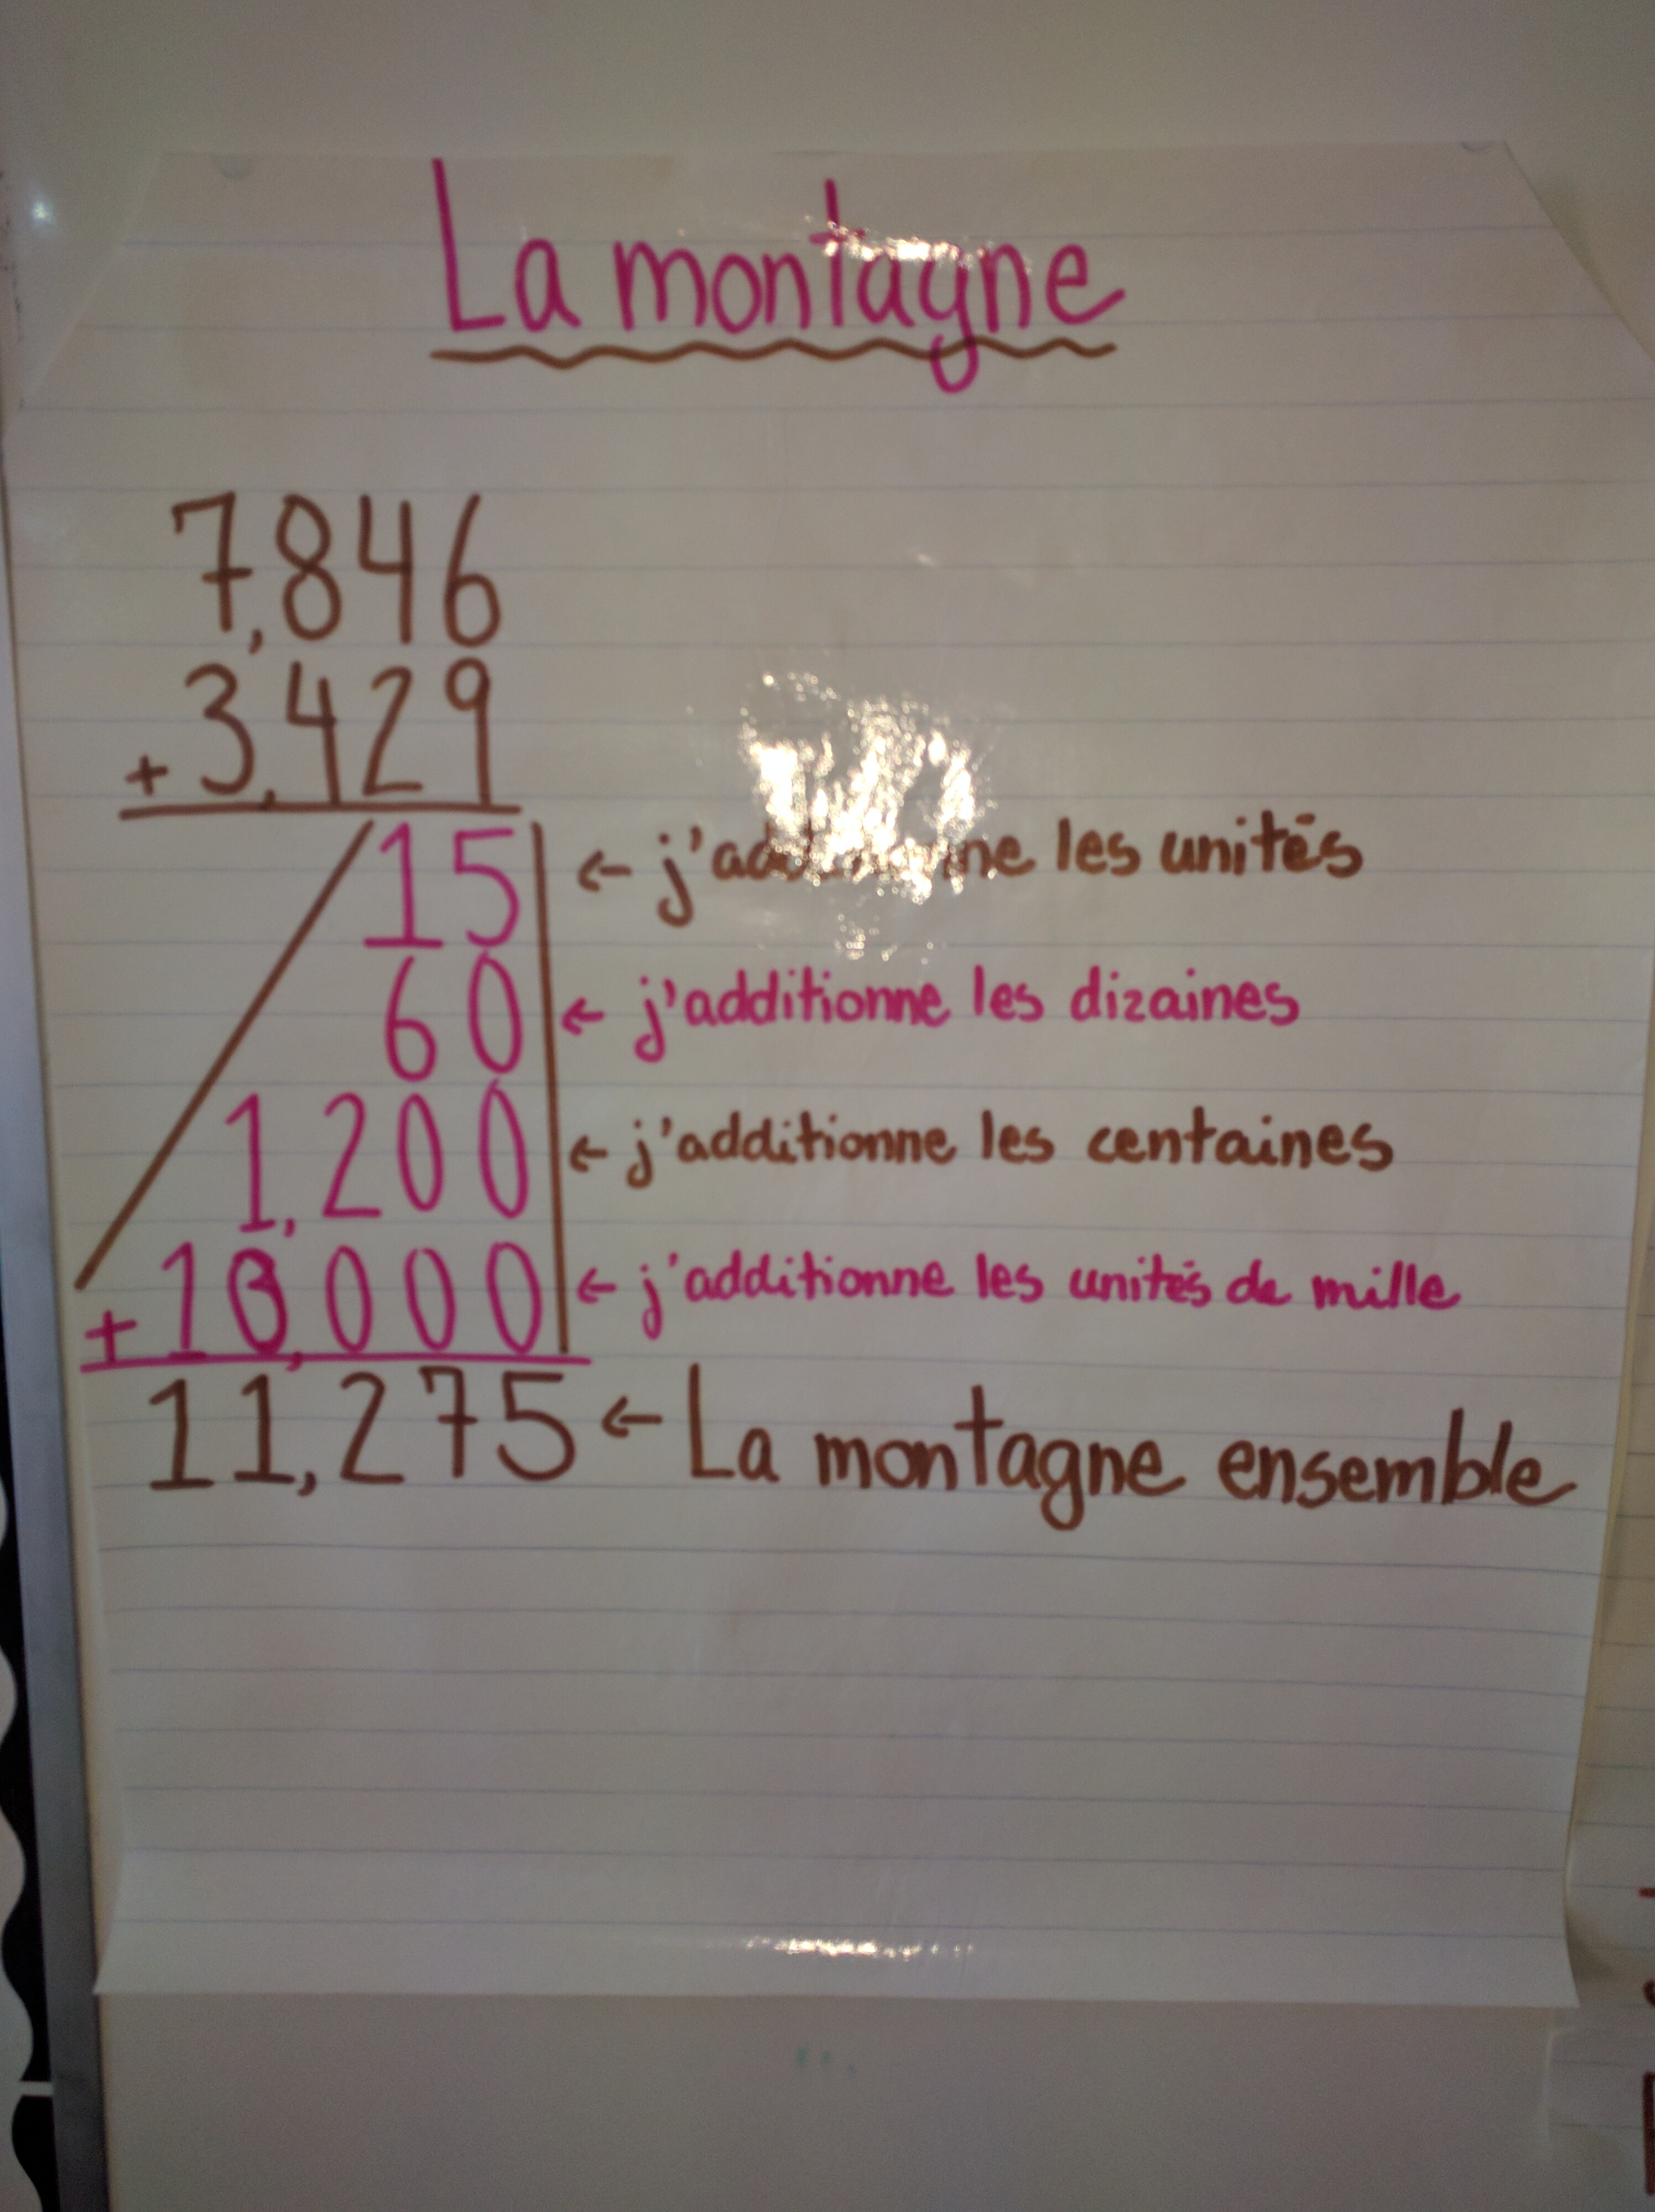 La montagne
7,846
+ 3,429
15 ← j'additionne les unités
60 ← j'additionne les dizaines
1,200 ← j'additionne les centaines
+ 10,000 ← j'additionne les unités de mille
11,275 ← La montagne ensemble